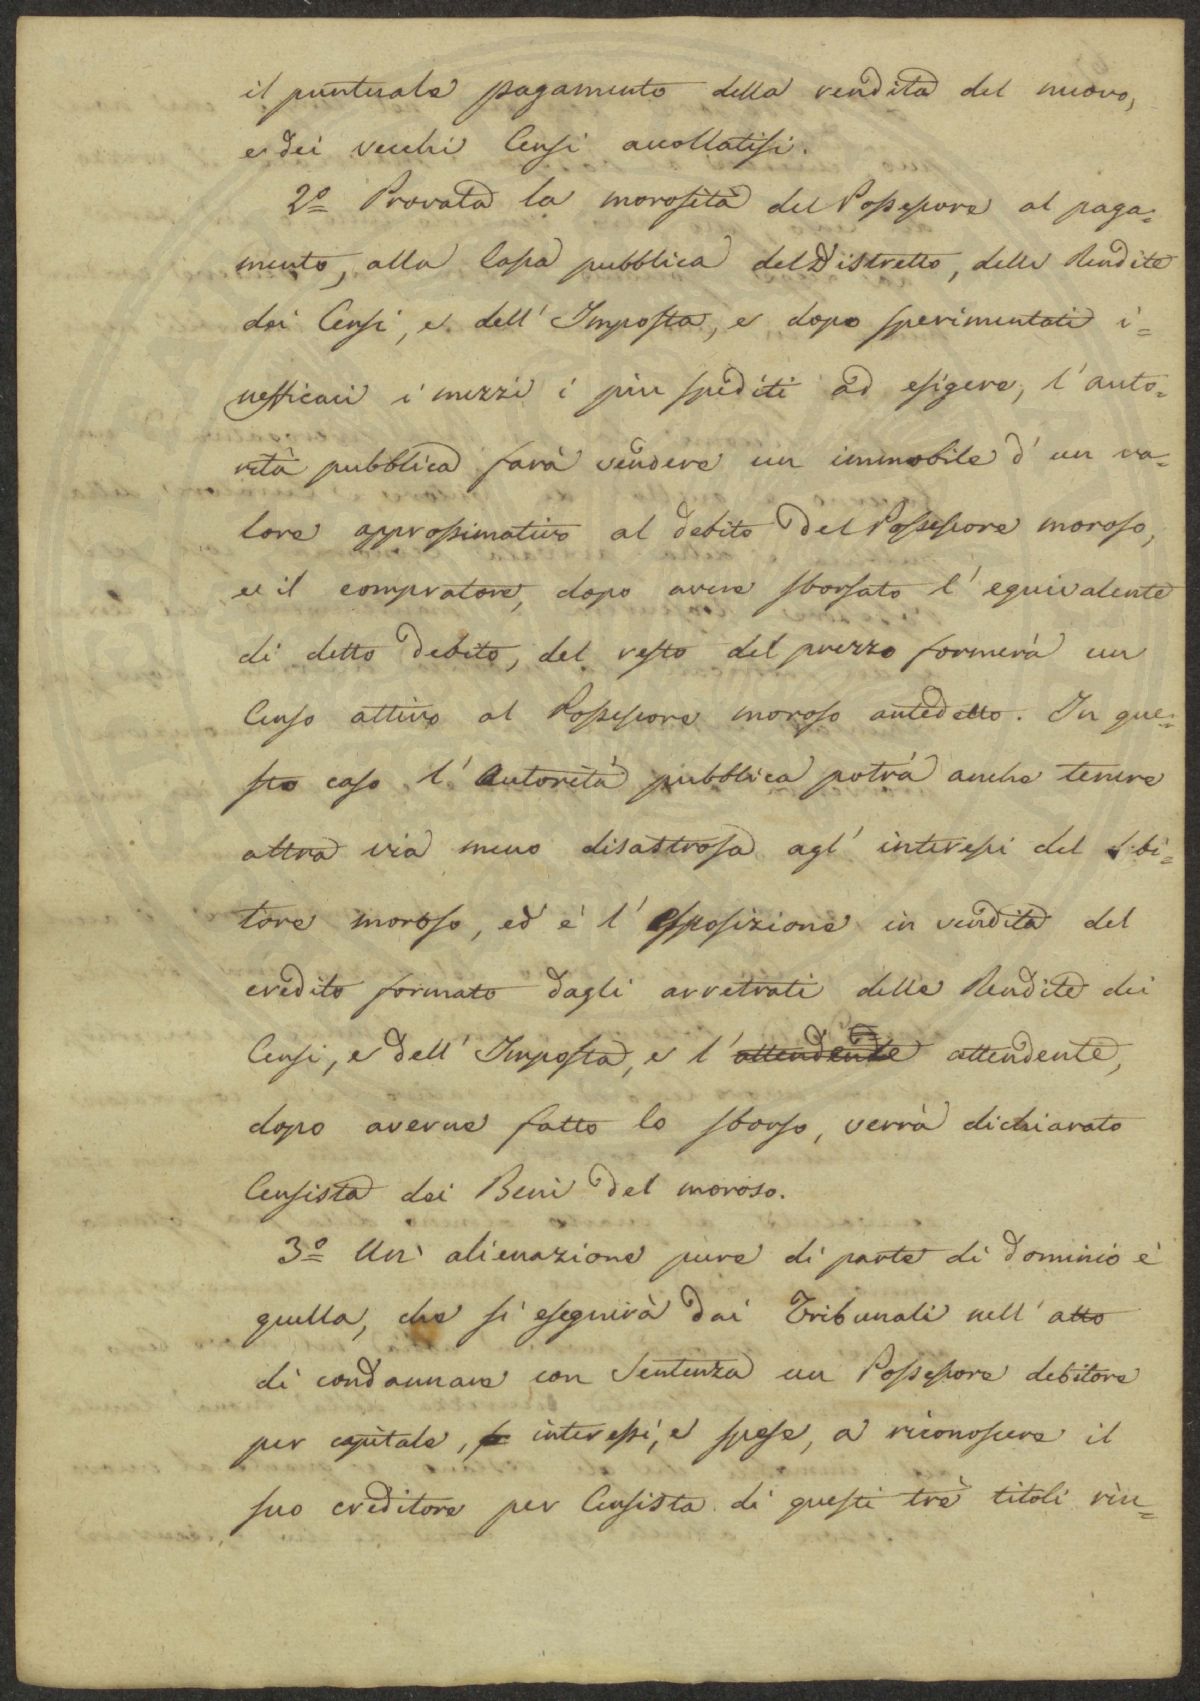 il puntuale pagamento della rendita del nuovo,
e dei vecchi Censi accollatisi.
2º Provata la morosità del Possessore al paga=
mento, alla Cassa pubblica del Distretto, delle Rendite
dei Censi, e dell' Imposta, e dopo sperimentati i=
nefficaci i mezzi i più spediti ad esigere, l'auto=
rità pubblica farà vendere un immobile d' un va=
lore approssimativo al debito del Possessore moroso,
e il compratore, dopo avere sborsato l' equivalente
di detto debito, del resto del prezzo formerà un
Censo attivo al Possessore moroso antedetto. In que=
sto caso l' Autorità pubblica potrà anche tenere
altra via meno disastrosa agl' interessi del debi=
tore moroso, ed è l' esposizione in vendita del
credito formato dagli arretrati delle Rendite dei
Censi, e dell' Imposta, e l' attendente attendente,
dopo averne fatto lo sborso, verrà dichiarato
Censista dei Beni del moroso.
3º Un' alienazione pure di parte di dominio è
quella, che si eseguirà dai Tribunali nell' atto
di condannare con Sentenza un Possessore debitore
per capitale, interessi, e spese, a riconoscere il
suo creditore per Censista di questi trè titoli riu=